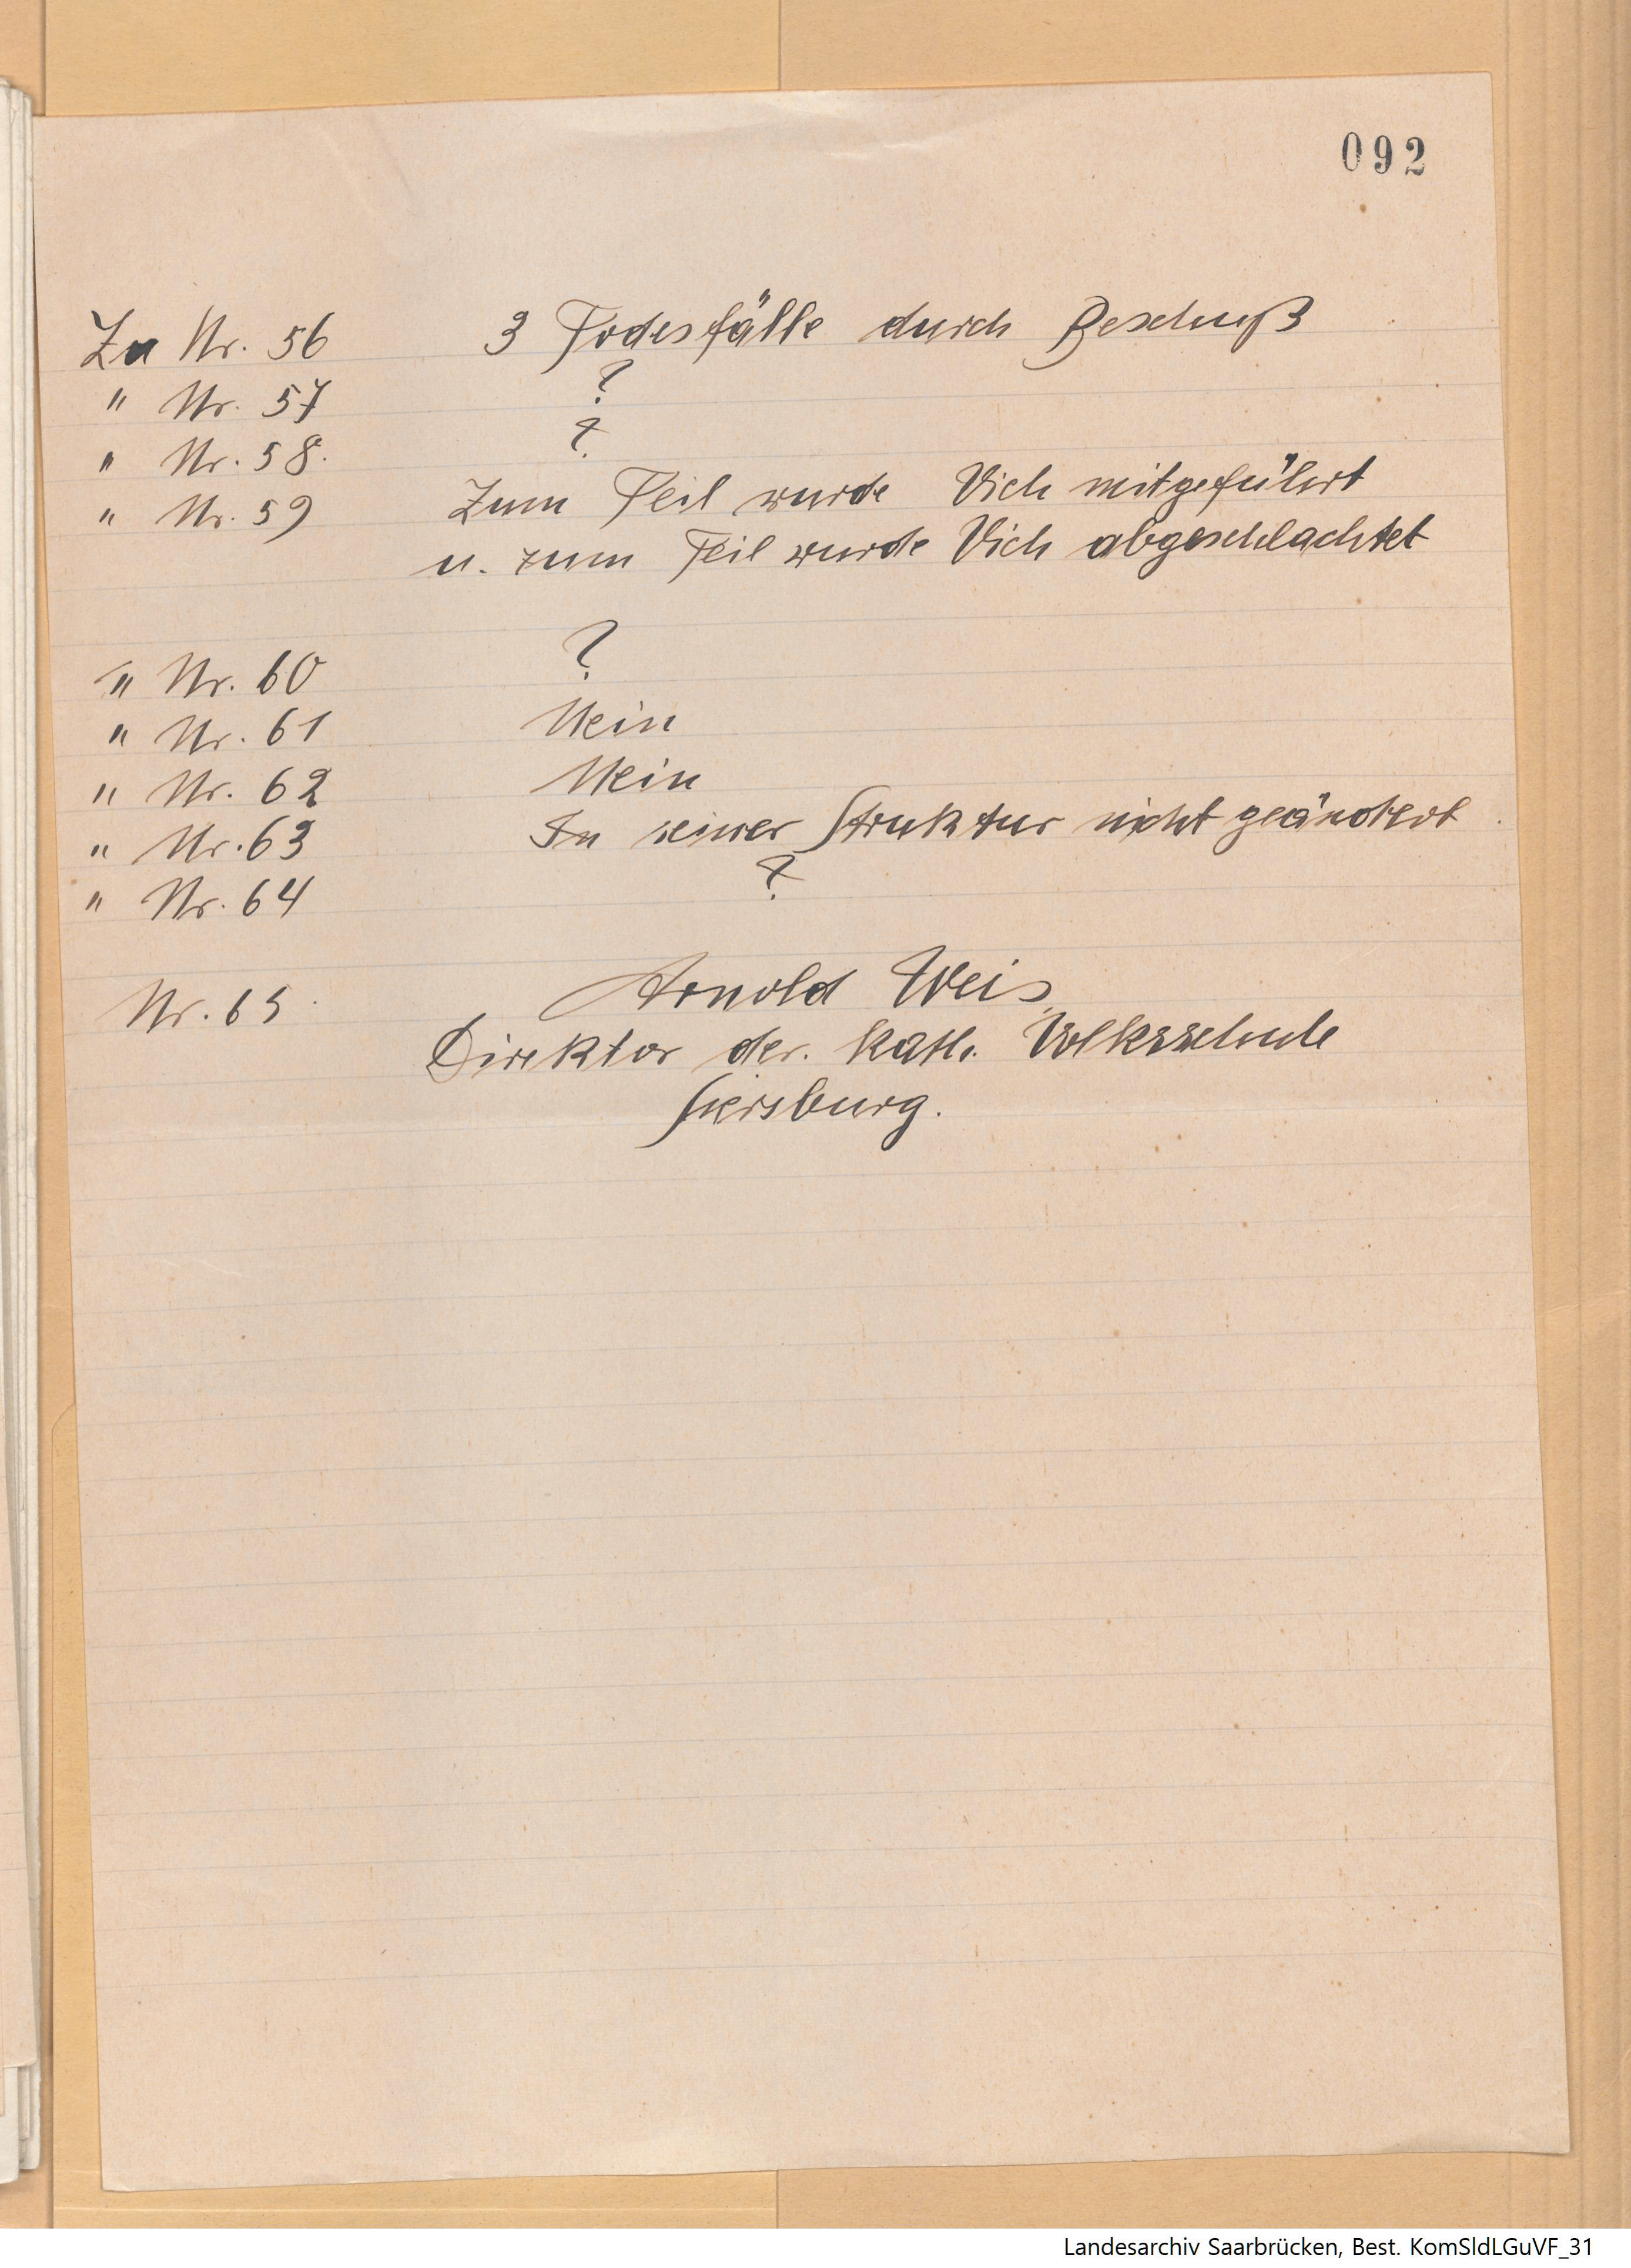 092
Zu Nr. 56 3 Todesfälle durch Beschuß
" Nr. 57 ?
" Nr. 58. ?
" Nr. 59 Zum Teil wurde Vieh mitgeführt
u. zum Teil wurde Vieh abgeschlachtet
" Nr. 60 ?
" Nr. 61 Nein
" Nr. 62 Nein
" Nr. 63 In seiner Struktur nicht geändert.
" Nr. 64 ?
Nr. 65. Arnold Weis,
Direktor der. kath. Volksschule
Siersburg.
Landesarchiv Saarbrücken, Best. KomSldLGuVF_31